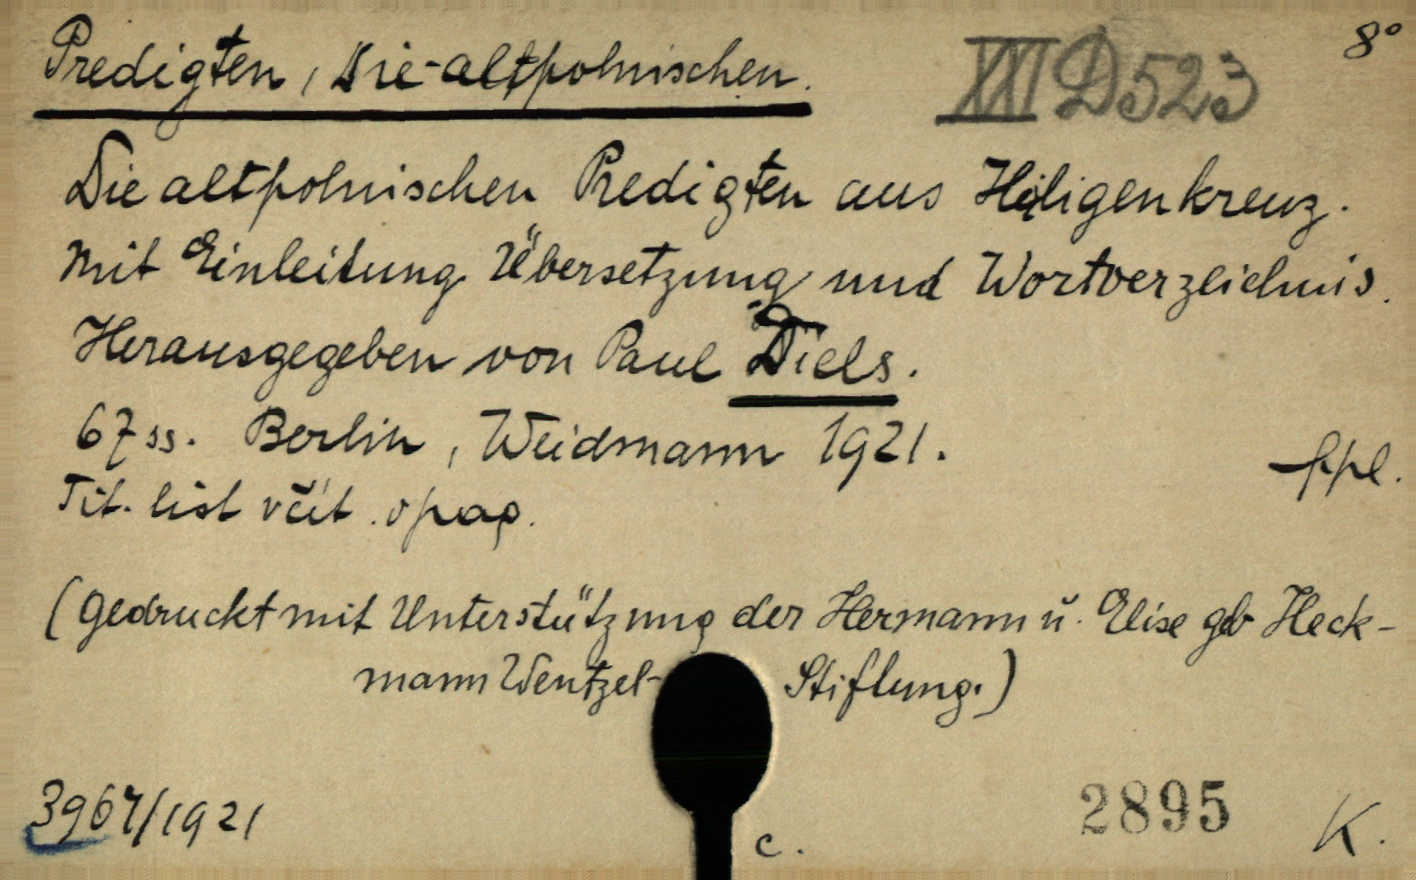 8°
Predigten, Die altpolnischen.
XXI D 523
Die altpolnischen Predigten aus Heiligenkreuz.
Mit Einleitung Übersetzung und Wortverzeichnis.
Herausgegeben von Paul Diels.
67 ss. Berlin, Weidmann 1921.
ppl.
Tit. list včit. opag.
(Gedruckt mit Unterstützung der Hermann u. Elise geb Heck-
mann Wentzel- Stiftung.)
3967/1921
2895
c.
K.